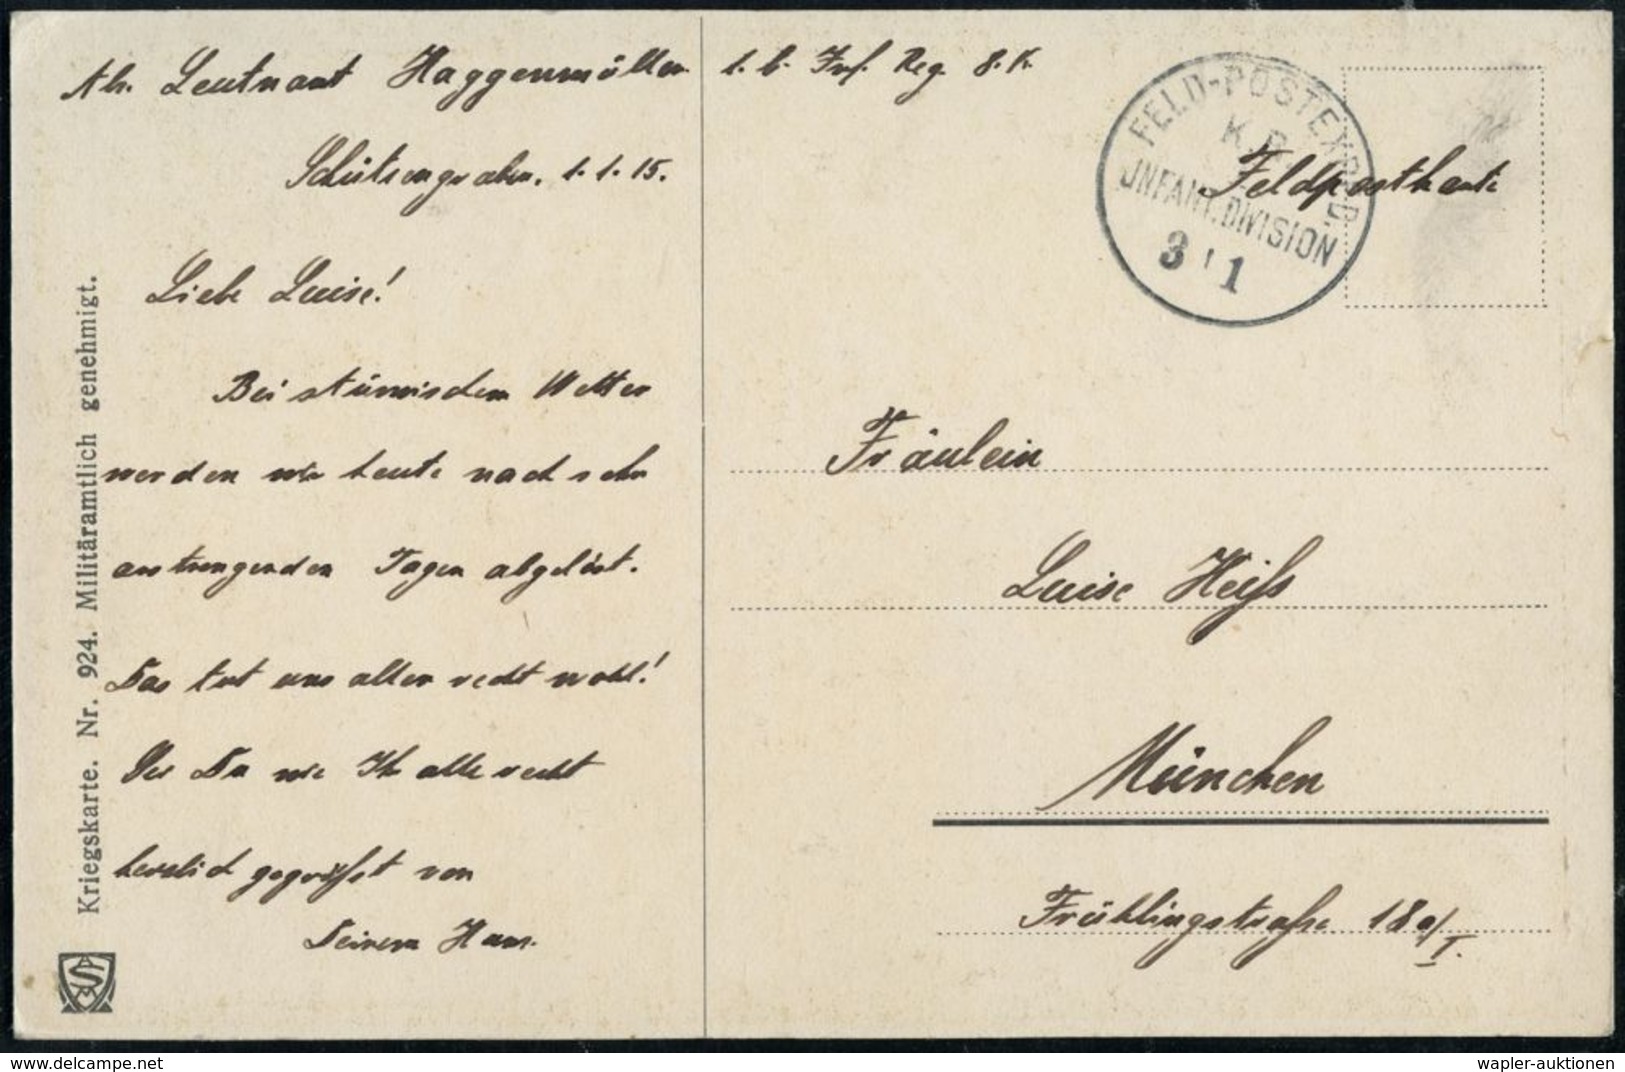 Abs. Leutnant Haggenmüller 1. b. Inf. Reg. 8. K.
Schützengraben, 1.1.15.
Liebe Luise!
Bei stürmischem Wetter
werden wir heute nach sehr
anstrengenden Tagen abgelöst.
Das tut uns allen recht wohl!
Sei Du wie Ihr alle recht
herzlich gegrüßt von
Deinem Hans.
Kriegskarte. Nr. 924. Militäramtlich genehmigt.
FELD-POSTEXPED.
K.B.
INFANT.DIVISION
3 1
Feldpostkarte
Fräulein
Luise Heiß
München
Frühlingstraße 18 a/I.
https://www.delcampe.net
wapler-auktionen